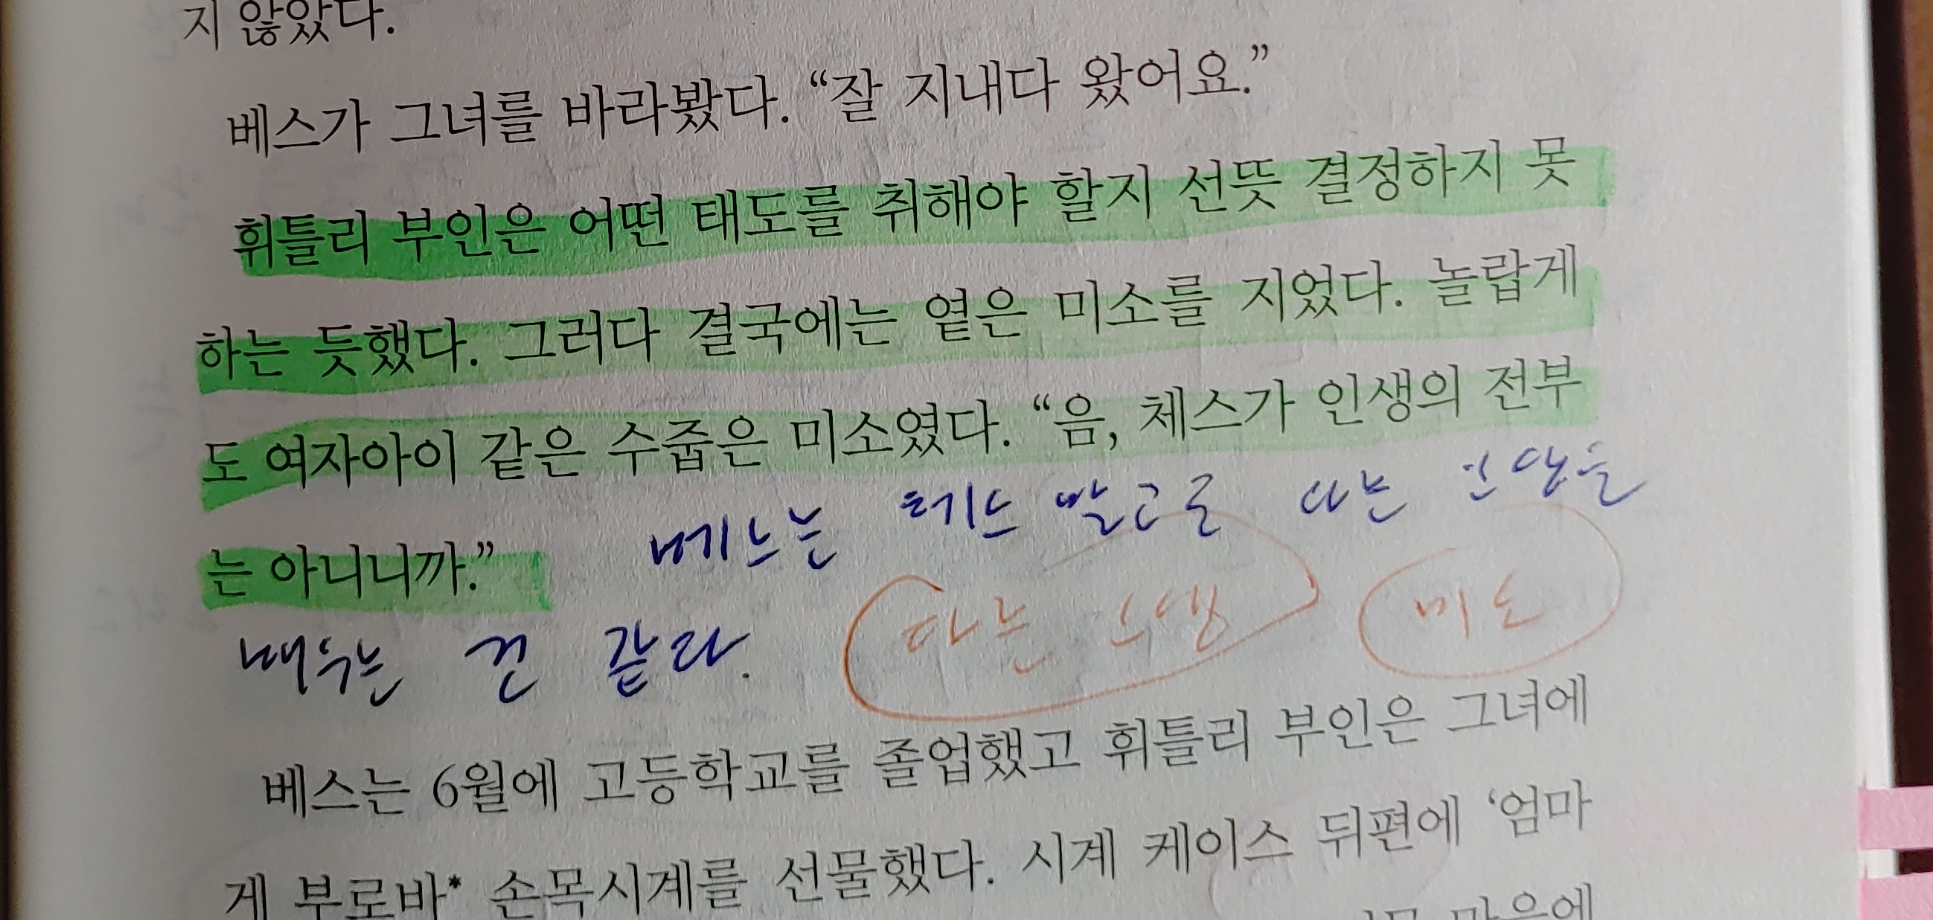 지 않았다.
베스가 그녀를 바라봤다. “잘 지내다 왔어요.”
휘틀리 부인은 어떤 태도를 취해야 할지 선뜻 결정하지 못
하는 듯했다. 그러다 결국에는 옅은 미소를 지었다. 놀랍게
도 여자아이 같은 수줍은 미소였다. “음, 체스가 인생의 전부
베스는 체스 말고도 다른 인생을
는 아니니까.”
다른 인생
배우는 것 같다.
베스는 6월에 고등학교를 졸업했고 휘틀리 부인은 그녀에
게 부로바* 손목시계를 선물했다. 시계 케이스 뒤편에 ‘엄마
마음에